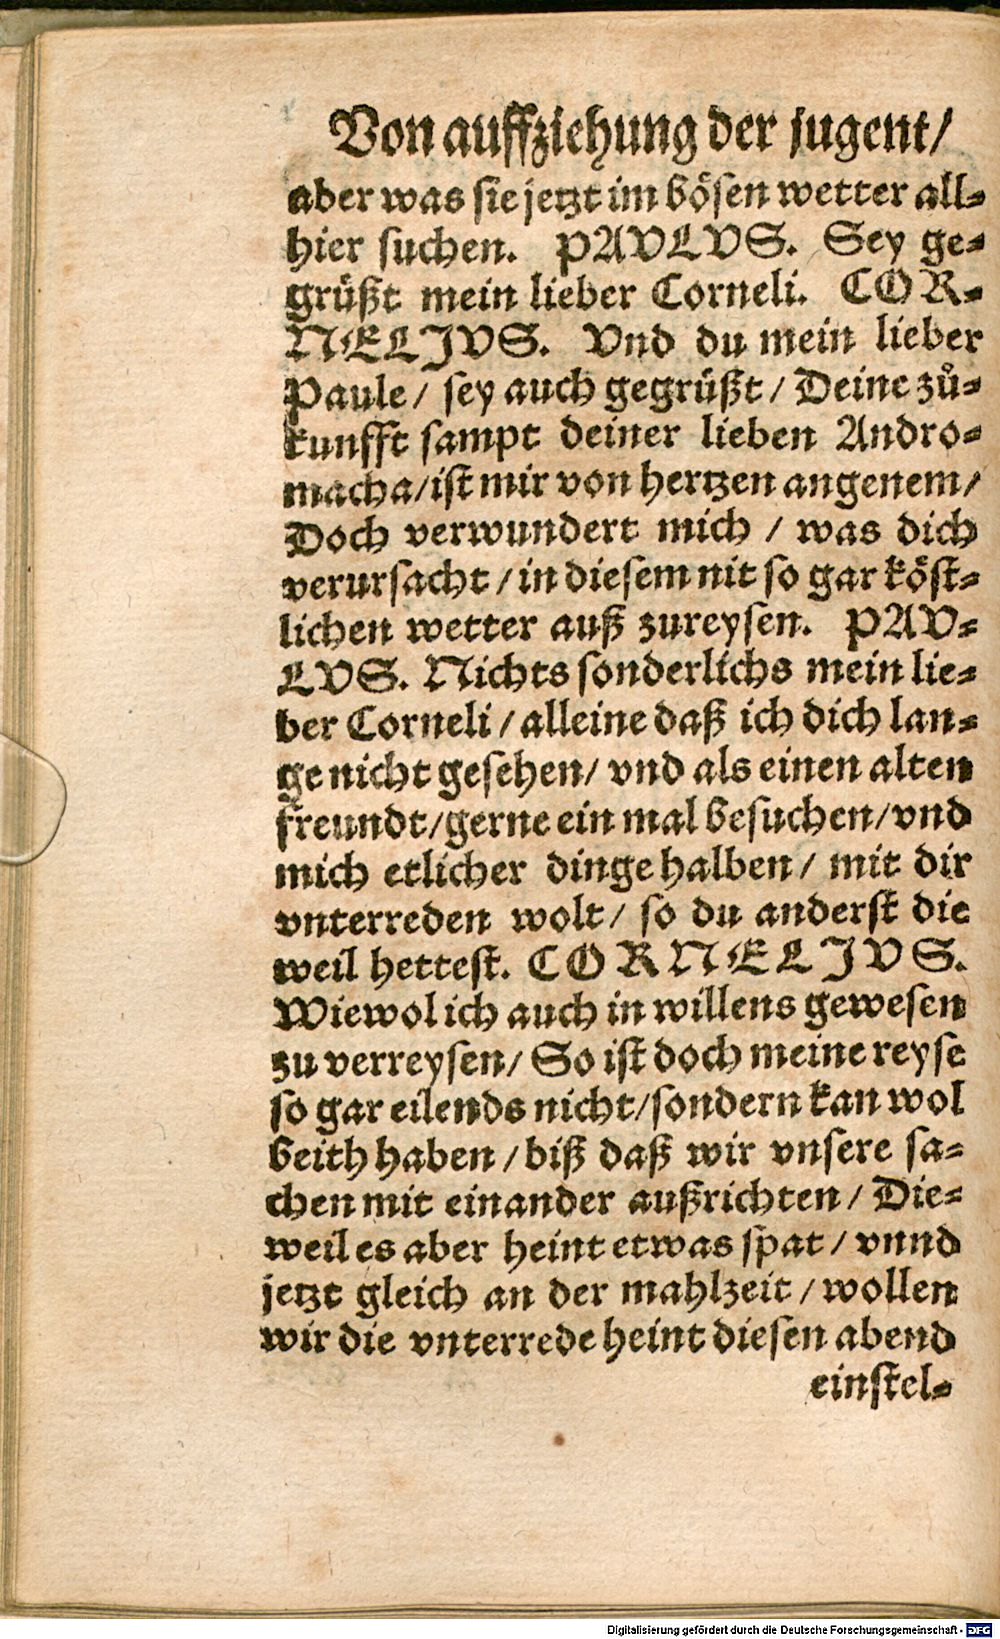 Von auffziehung der jugent/
aber was sie jetzt im bösen wetter all⸗
hier suchen. PAVLVS. Sey ge⸗
grüßt mein lieber Corneli. COR⸗
NELIVS. Vnd du mein lieber
Paule/ sey auch gegrüßt/ Deine zů⸗
kunfft sampt deiner lieben Andro⸗
macha/ist mir von hertzen angenem/
Doch verwundert mich / was dich
verursacht / in diesem nit so gar köst⸗
lichen wetter auß zureysen. PAV⸗
LVS. Nichts sonderlichs mein lie⸗
ber Corneli / alleine daß ich dich lan⸗
ge nicht gesehen/ vnd als einen alten
freundt/gerne ein mal besuchen/vnd
mich etlicher dinge halben/ mit dir
vnterreden wolt/ so du anderst die
weil hettest. CORNELIVS.
Wiewol ich auch in willens gewesen
zu verreysen/ So ist doch meine reyse
so gar eilends nicht/sondern kan wol
beith haben / biß daß wir vnsere sa⸗
chen mit einander außrichten / Die⸗
weil es aber heint etwas spat / vnnd
jetzt gleich an der mahlzeit / wollen
wir die vnterrede heint diesen abend
einstel⸗
Digitalisierung gefördert durch die Deutsche Forschungsgemeinschaft - DFG